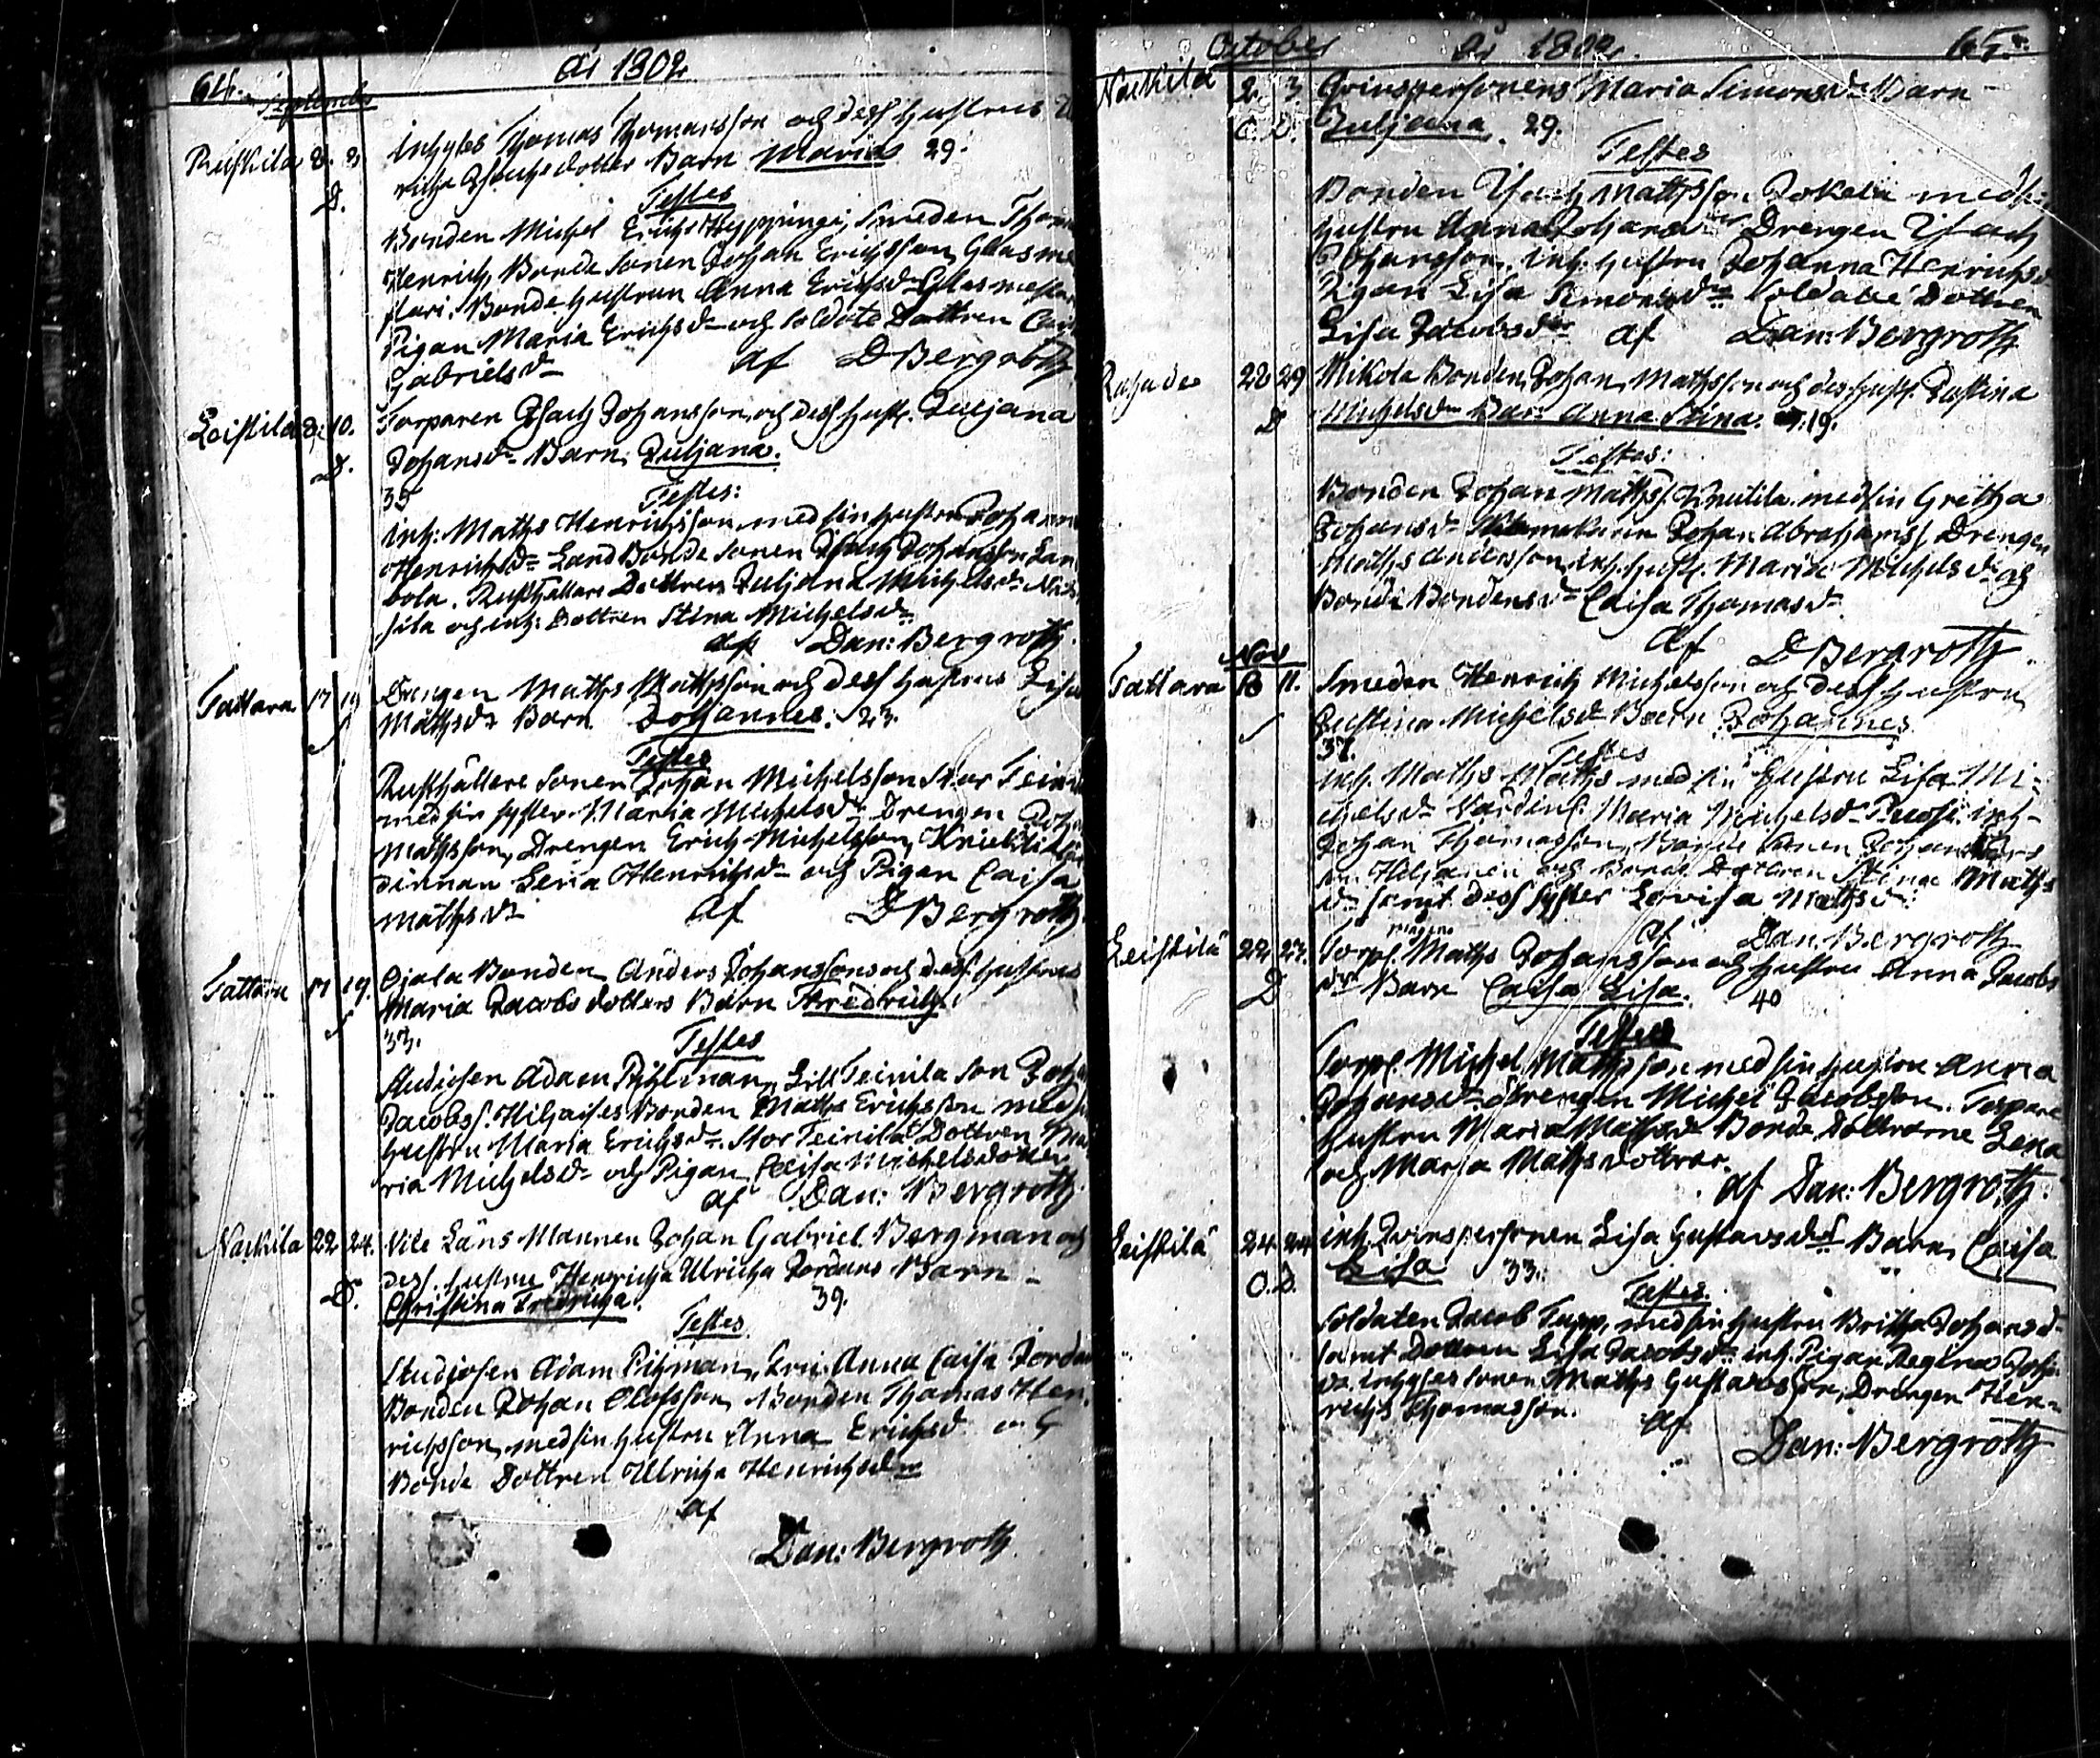 64. År 1802
September
Ruskila 8. 9. Inhyses Thomas Thomasson och dess hustrus
D. richa Isachsdotter Barn Maria 29.
Testes
Bonden Michel Erichs Hyppingi, Smeden Thom
Henrich, Bonde Sonen Johan Erichsson Glasme
stari. Bonde hustrun Anna Erichsdr Glasmestar
Pigan Maria Erichsdr och Soldats Dottren Cai
Gabrielsdr af DBergroth
Leistilä 8. 10. Torparen Isach Johansson och dess hust. Juljana
D. Johansdr Barn Juljana.
35 Testes:
inh: Maths Henrichsson med sin hustru Johann
Henrichsdr Land Bonde Sonen Isach Johansson Lan
bola. Rusthållare Dottren Juljana Michelsdr
sila och inh: Dottren Stina Michelsdr
af Dan: Bergroth.
Tattara 17 19 Drengen Maths Mathsson och dess hustrus Lisa
Mathsdr Barn Johannes. 23.
Testes
Rusthållare Sonen Johan Michelsson Stor Teini
med sin syster Maria Michelsdr Drengen Joha
Mathsson, Drengen Erich Michelsson, Knuutila
dinnan Lena Henrichsdr och Pigan Caisa
Mathsdr af DBergroth
Tattara 17 19. Ojala Bonden Anders Johanssons och dess hustrus
Maria Jacobs dotters Barn Fredrich.
33. Testes
Studiosen Adam Pihlman, Lill Teinila Son Joh
Jacobss. Hihaises Bonden Maths Erichsson med
hustru Maria Erichsdr. Stor Teinila Dottren Ma
ria Michelsdr och Pigan Caisa Michelsdotter
af Dan: Bergroth
Nackila 22 24. Vice Läns Mannen Johan Gabriel Bergman och
D. dess hustru Henricha Ulricha Jordans Barn
Christina Fredricha. 39.
Testes
Studiosen Adam Pihlman, Anna Caisa Jordan
Bonden Johan Olofsson, Bonden Thomas Hen
richsson, med sin hustru Anna Erichsdr och
Bonde Dottren Ulricha Henrichsdr
af
Dan: Bergroth
October År 1802. 65.
Nackila 2. 3. Qvinspersonens Maria Simonsdr Barn
O. D. Juljana. 29.
Testes
Bonden Isach Mathsson Jokela med sin
hustru Anna Johansdr Drengen Isach
Johansson, inh. hustru Johanna Henrichsdr
Pigan Lisa Simonsdr Soldate Dottren
Lisa Jacobsdr af Dan: Bergroth
22 29 Mikola Bonden Johan Mathsson och dess hust. Justina
D Michelsdr Barn Anna Stina. 19.
Testes:
Bonden Johan Mathss. Knutila med sin Gretha
Johansdr Johan Abrahamss. Drengen
Maths Andersson, inh. hust. Maria Michelsdr och
Bonde Bondensdr Caisa Thomasdr
af DBergroth
Nov
Tattara 10 11. Smeden Henrich Michelsson och dess hustru
Justina Michelsdr Barn Johannes
37. Testes
inh. Maths Maths med sin hustru Lisa Mi-
chelsdr Maria Michelsdr inh-
Johan Thomasson, Bonde Sonen Johan
son och Bonde Dottren Stina Maths
dr samt dess syster Lovisa Mathsdr.
af Dan. Bergroth
Leistilä 22 23. Torp. Maths Johansson och hustru Anna Jacobs
D dr Barn Caisa Lisa. 40
Testes
Torp. Michel Mathsson med sin hustru Anna
Johansdr. Drengen Michel Jacobsson. Torpare
hustru Maria Mathsdr Bonde Döttrarne Lena
och Maria Mathsdöttrar.
af Dan: Bergroth.
Leistilä 24 24 inh. Qvinspersonen Lisa Gustavsdr Barn Caisa
O. D. Lisa 33.
Testes.
Soldaten Jacob Tapp, med sin hustru Britha Johansd
samt Dottren Lisa Jacobsdr inh. Pigan Regina Joha
dr. inhyses Sonen Maths Gustavsson, Drengen Hen-
richs Thomasson. af
Dan: Bergroth